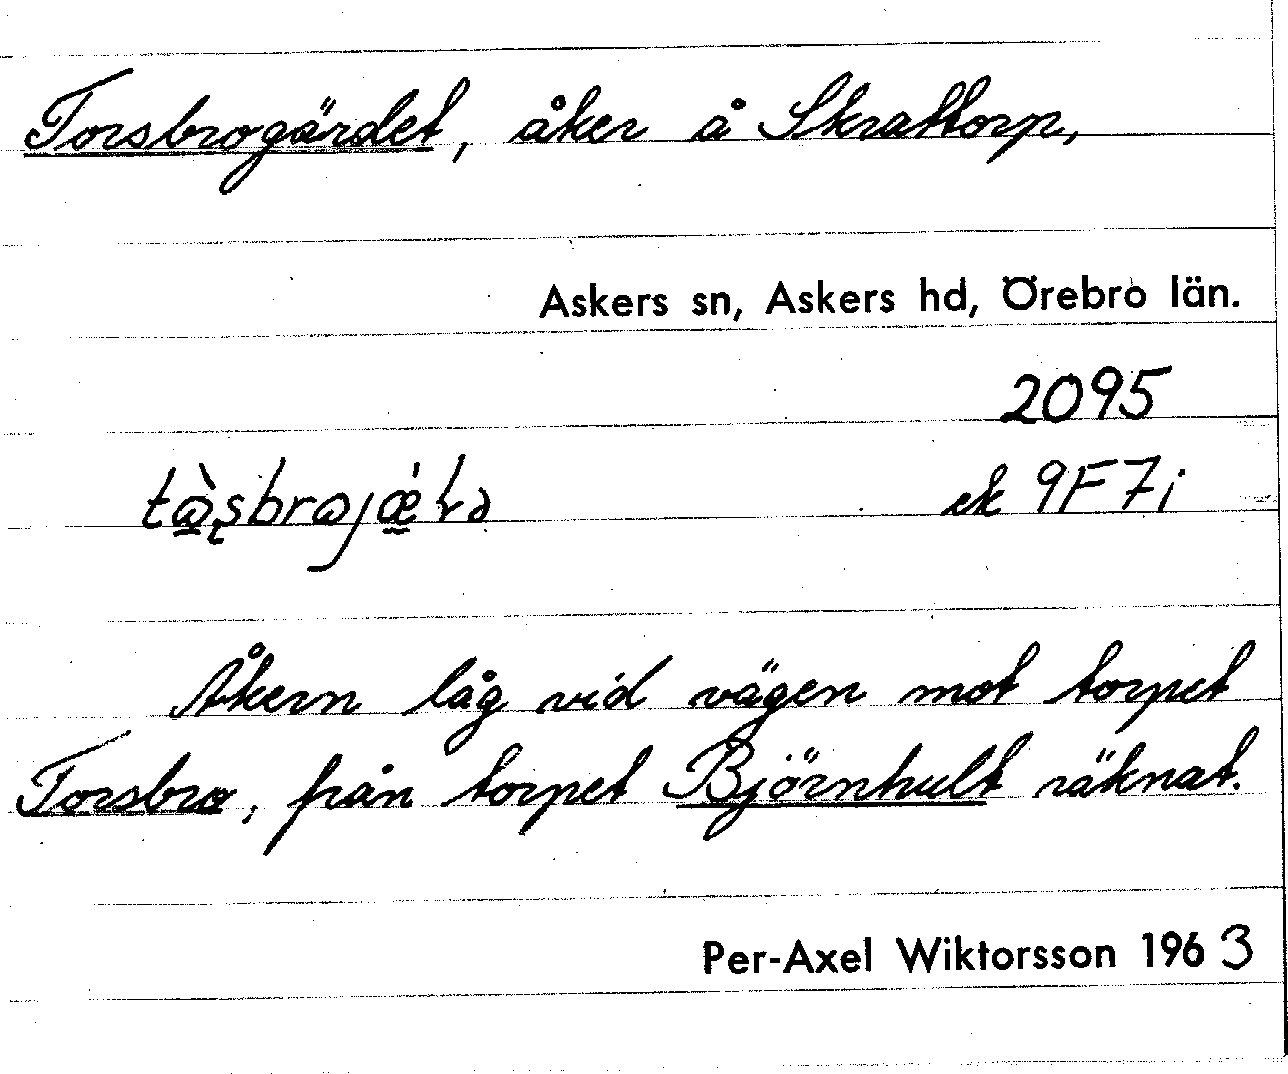 Torsbrogärdet, åker å Skrattorp,
Askers sn, Askers hd, Örebro län.
2095
ek 9F7i
Åkern låg vid vägen mot torpet
Torsbro, från torpet Björnhult räknat.
Per-Axel Wiktorsson 1963